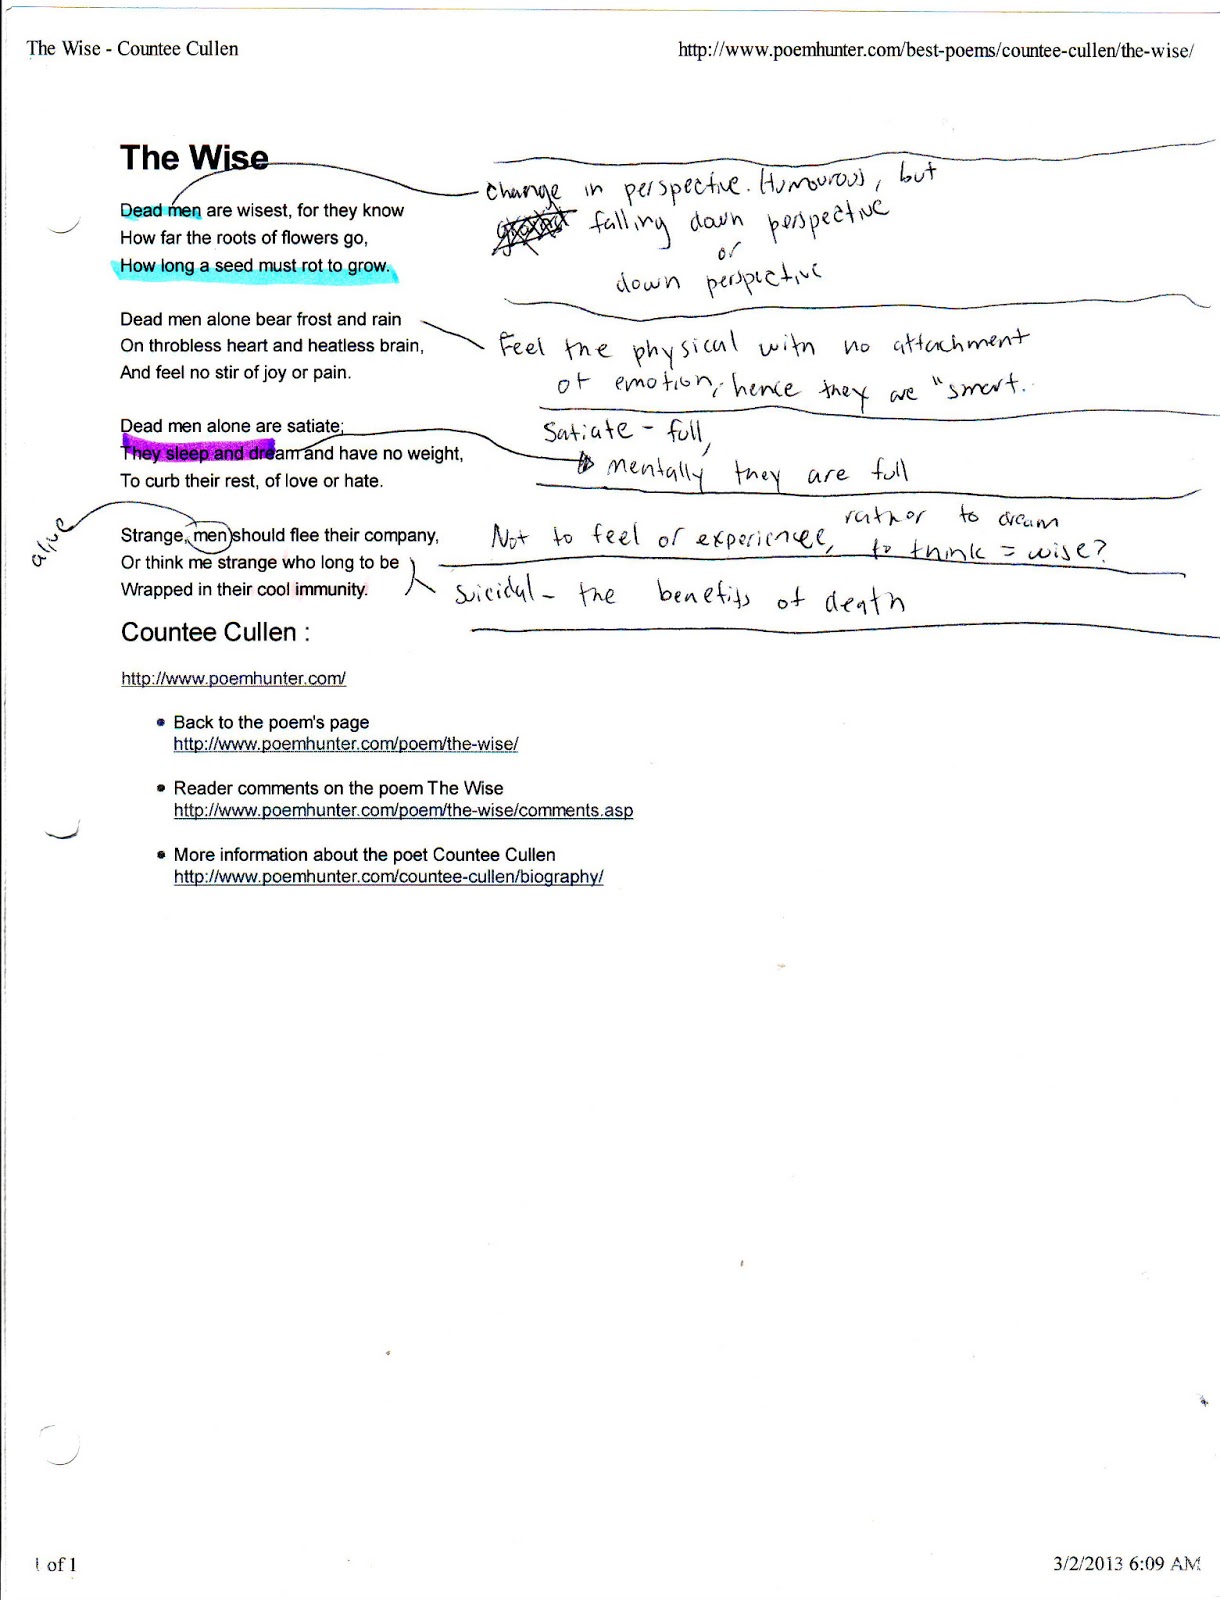 The Wise - Countee Cullen
http://www.poemhunter.com/best-poems/countee-cullen/the-wise/
The Wise
change in perspective. Humourous, but
falling down perspective
or
down perspective
Dead men are wisest, for they know
How far the roots of flowers go,
How long a seed must rot to grow.
Dead men alone bear frost and rain
On throbless heart and heatless brain,
And feel no stir of joy or pain.
Feel the physical with no attachment
of emotion, hence they are "smart.
Dead men alone are satiate;
They sleep and dream and have no weight,
To curb their rest, of love or hate.
Satiate - full,
mentally they are full
alive
Strange, men should flee their company,
Or think me strange who long to be
Wrapped in their cool immunity.
rather to dream
Not to feel or experience, to think = wise?
Suicidal - the benefits of death
Countee Cullen :
http://www.poemhunter.com/
• Back to the poem's page
http://www.poemhunter.com/poem/the-wise/
• Reader comments on the poem The Wise
http://www.poemhunter.com/poem/the-wise/comments.asp
• More information about the poet Countee Cullen
http://www.poemhunter.com/countee-cullen/biography/
1 of 1
3/2/2013 6:09 AM